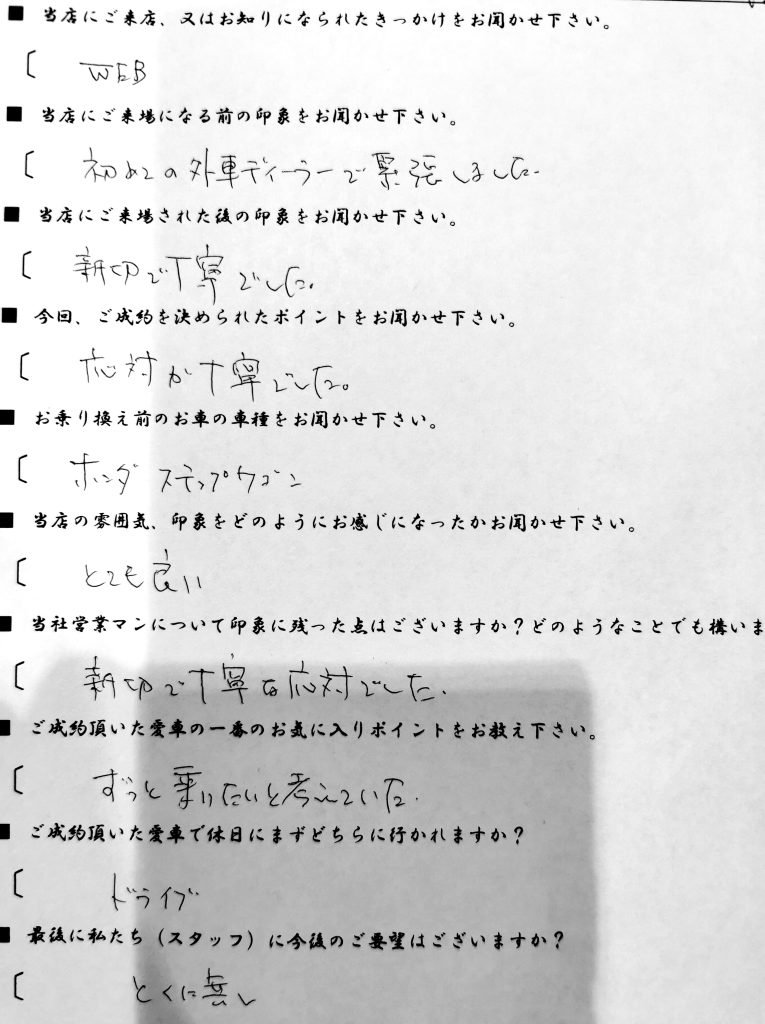 ■ 当店にご来店、又はお知りになられたきっかけをお聞かせ下さい。
〔 WEB
■ 当店にご来場になる前の印象をお聞かせ下さい。
〔 初めての外車ディーラーで緊張しました。
■ 当店にご来場された後の印象をお聞かせ下さい。
〔 親切で丁寧でした。
■ 今回、ご成約を決められたポイントをお聞かせ下さい。
〔 応対が丁寧でした。
■ お乗り換え前のお車の車種をお聞かせ下さい。
〔 ホンダ ステップワゴン
■ 当店の雰囲気、印象をどのようにお感じになったかお聞かせ下さい。
〔 とても良い
■ 当社営業マンについて印象に残った点はございますか?どのようなことでも構いま
〔 親切で丁寧な応対でした。
■ ご成約頂いた愛車の一番のお気に入りポイントをお教え下さい。
〔 ずっと乗りたいと考えていた。
■ ご成約頂いた愛車で休日にまずどちらに行かれますか?
〔 ドライブ
■ 最後に私たち(スタッフ)に今後のご要望はございますか?
〔 とくに無し